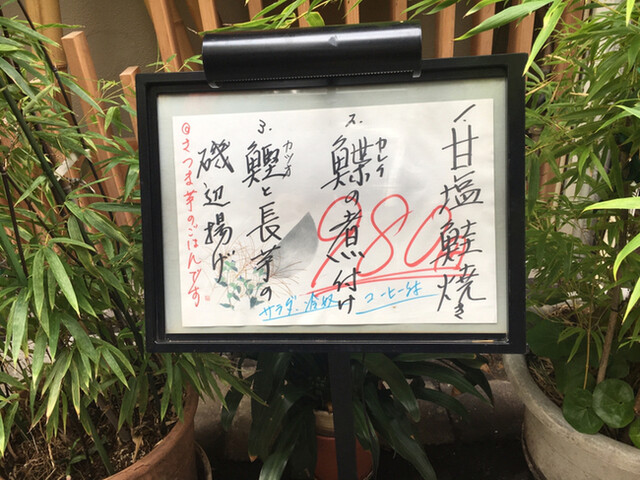 1. 甘塩鮭焼き
2. 鰈の煮付け
カレイ
3. 鰹と長芋の
カツオ
磯辺揚げ
980
サラダ、
コーヒー付
◎さつま芋のごはんです